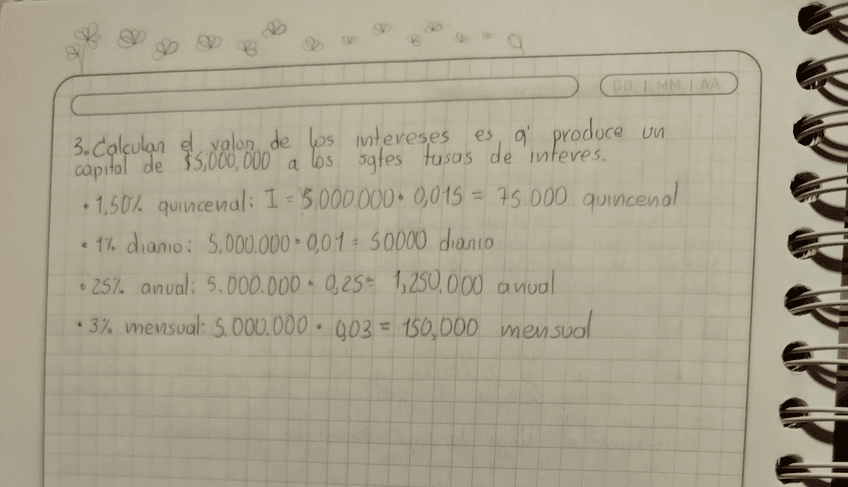 DD | MM | AA
3. Calculan el valor de los intereses es q' produce un
capital de $5,000,000 a los sgtes tusas de interes.
• 1,50% quincenal: I = 5.000.000 • 0,015 = 75.000 quincenal
• 1% diario: 5.000.000 • 0,01 = 50000 diario
• 25% anual: 5.000.000 • 0,25= 1,250,000 anual
• 3% mensual: 5,000.000 • 0,03 = 150,000 mensual